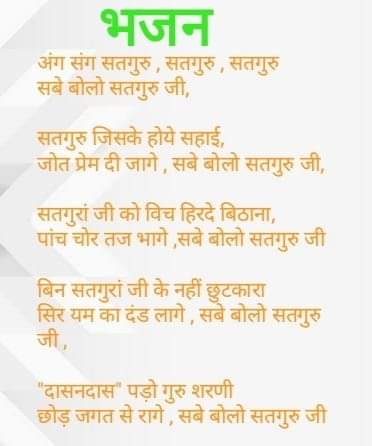 भजन
अंग संग सतगुरु , सतगुरु , सतगुरु
सबे बोलो सतगुरु जी,
सतगुरु जिसके होये सहाई,
जोत प्रेम दी जागे , सबे बोलो सतगुरु जी,
सतगुरां जी को विच हिरदे बिठाना,
पांच चोर तज भागे ,सबे बोलो सतगुरु जी
बिन सतगुरां जी के नहीं छुटकारा
सिर यम का दंड लागे , सबे बोलो सतगुरु
जी ,
"दासनदास" पड़ो गुरु शरणी
छोड़ जगत से रागे , सबे बोलो सतगुरु जी